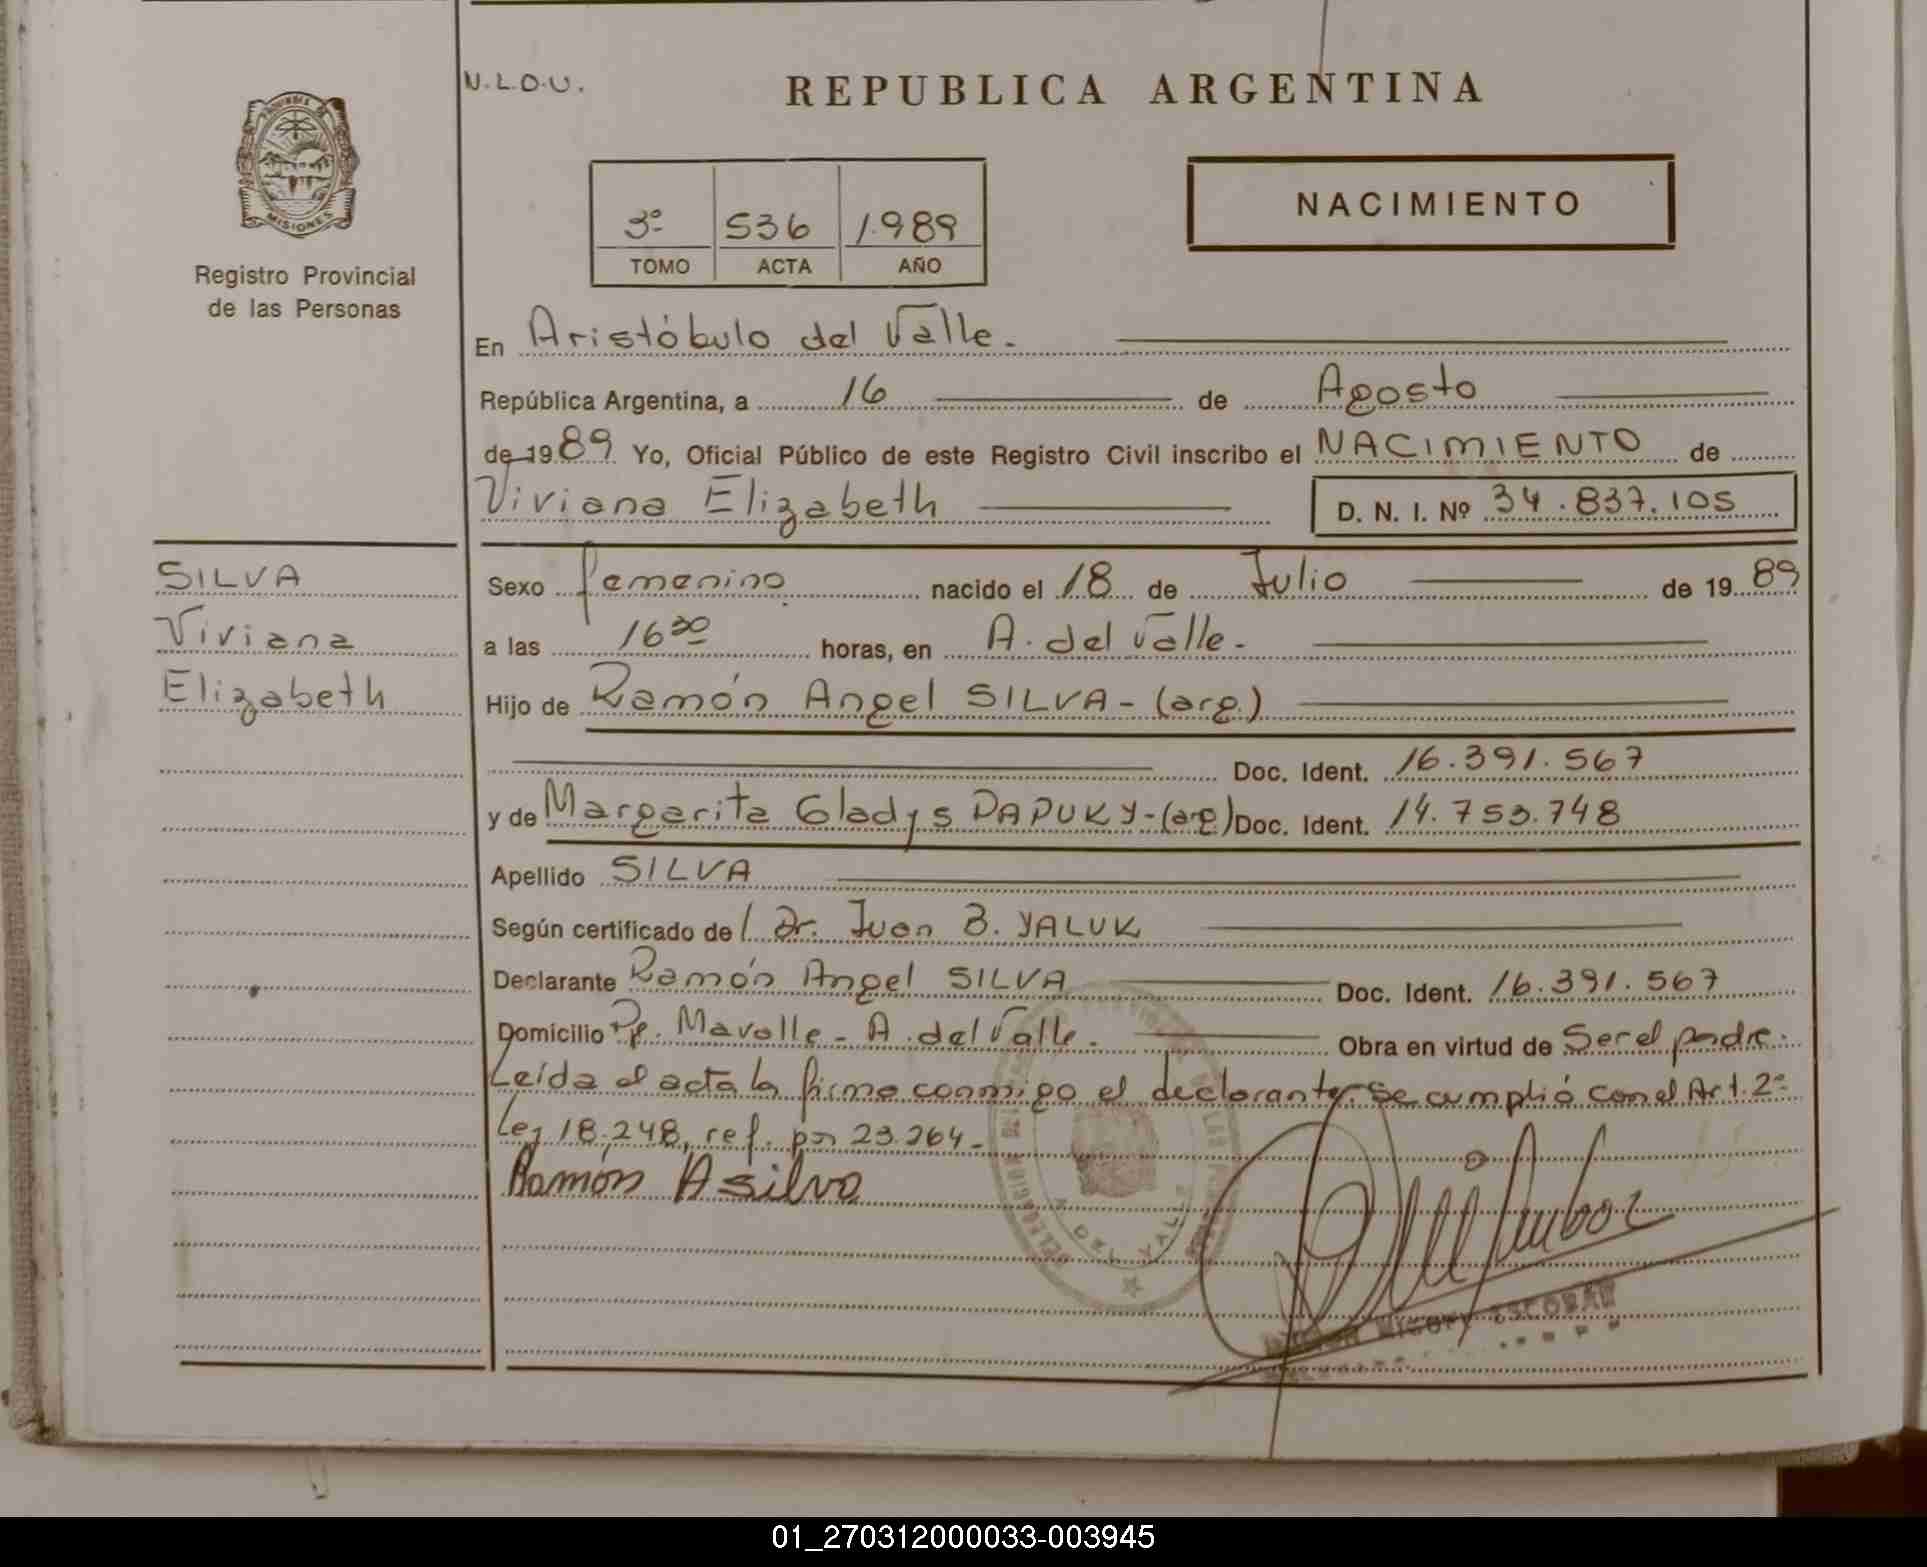 N.L.O.U.
REPUBLICA ARGENTINA
MISIONES
Registro Provincial
de las Personas
3º 536 1.989
TOMO ACTA AÑO
NACIMIENTO
En Aristóbulo del Valle.-
República Argentina, a 16 de Agosto
de 1989 Yo, Oficial Público de este Registro Civil inscribo el NACIMIENTO de
Viviana Elizabeth D. N. I. Nº 34.837.105
SILVA
Viviana
Elizabeth
Sexo femenino nacido el 18 de Julio de 1989
a las 16 30 horas, en A. del Valle.-
Hijo de Ramón Angel SILVA-(arg.)
Doc. Ident. 16.391.567
y de Margarita Gladys PAPUKY-(arg) Doc. Ident. 14.753.748
Apellido SILVA
Según certificado de l Dr. Juan B. YALUK
Declarante Ramón Angel SILVA Doc. Ident. 16.391.567
Domicilio Pje. Mavalle - A. del Valle.- Obra en virtud de Ser el padre.
Leída el acta la firma conmigo el declarante. Se cumplió con el Art. 2º
Ley 18.248, ref. por 23.264.-
Ramón A Silva
ESCOBAR
01_270312000033-003945